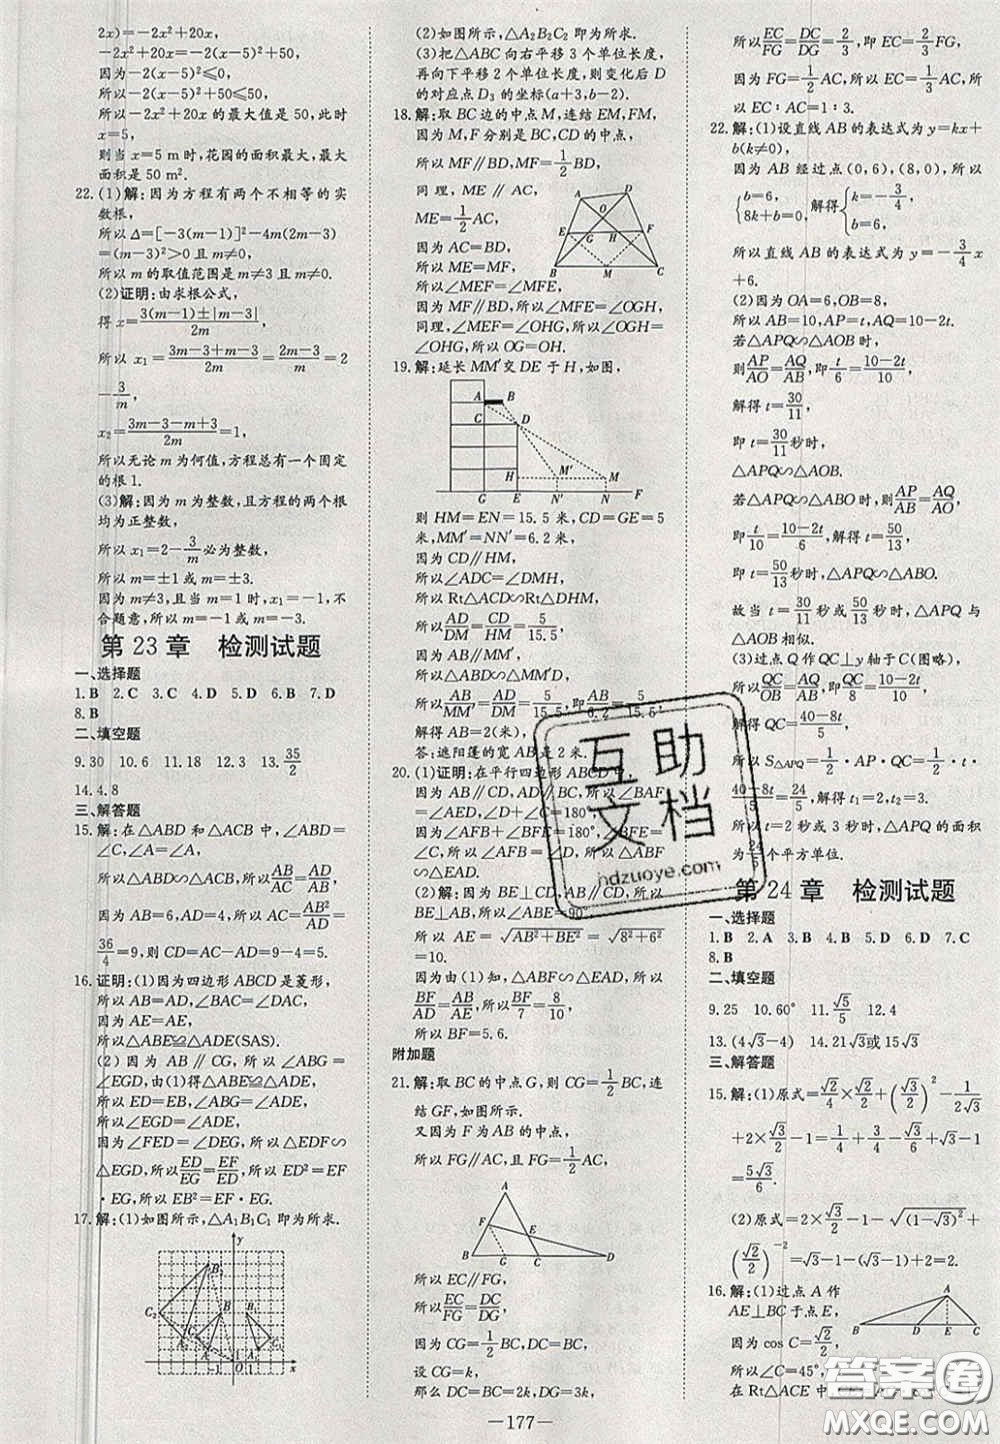 2x)=-2x²+20x,
-2x²+20x=-2(x-5)²+50,
因为-2(x-5)²⩽0,
所以-2(x-5)²+50⩽50,
所以-2x²+20x 的最大值是 50,此时
x=5,
则当 x=5 m 时,花园的面积最大,最大
面积是 50 m².
22.(1)解:因为方程有两个不相等的实
数根,
所以 Δ=[-3(m-1)]²-4m(2m-3)
=(m-3)²>0 且 m≠0,
所以 m 的取值范围是 m≠3 且 m≠0.
(2)证明:由求根公式,
得 x=\frac{3(m-1)±|m-3|}{2m},
所以 x₁=\frac{3m-3+m-3}{2m}=\frac{2m-3}{m}=2
-\frac{3}{m},
x₂=\frac{3m-3-m+3}{2m}=1,
所以无论 m 为何值,方程总有一个固定
的根 1.
(3)解:因为 m 为整数,且方程的两个根
均为正整数,
所以 x₁=2-\frac{3}{m}必为整数,
所以 m=±1 或 m=±3.
因为 m≠3,且当 m=1 时,x₁=-1,不
合题意,所以 m=-1 或 m=-3.
第 23 章 检测试题
一、选择题
1.B 2.C 3.C 4.D 5.D 6.B 7.D
8.B
二、填空题
9.30 10.6 11.18 12.3 13.\frac{35}{2}
14.4.8
三、解答题
15.解:在△ABD 和△ACB 中,∠ABD=
∠C,∠A=∠A,
所以△ABD∽△ACB,所以\frac{AB}{AC}=\frac{AD}{AB}.
因为 AB=6,AD=4,所以 AC=\frac{AB²}{AD}=
\frac{36}{4}=9,则 CD=AC-AD=9-4=5.
16.证明:(1)因为四边形 ABCD 是菱形,
所以 AB=AD,∠BAC=∠DAC,
因为 AE=AE,
所以△ABE≌△ADE(SAS).
(2)因为 AB∥CG,所以∠ABG=
∠EGD,由(1)得△ABE≌△ADE,
所以 ED=EB,∠ABG=∠ADE,
所以∠EGD=∠ADE,
因为∠FED=∠DEG,所以△EDF∽
△EGD,所以\frac{ED}{EG}=\frac{EF}{ED},所以 ED²=EF
·EG,所以 EB²=EF·EG.
17.解:(1)如图所示,△A₁B₁C₁ 即为所求.
(2)如图所示,△A₂B₂C₂ 即为所求.
(3)把△ABC 向右平移 3 个单位长度,
再向下平移 2 个单位长度,则变化后 D
的对应点 D₃ 的坐标(a+3,b-2).
18.解:取 BC 边的中点 M,连结 EM,FM,
因为 M,F 分别是 BC,CD 的中点,
所以 MF∥BD,MF=\frac{1}{2}BD,
同理,ME∥AC,
ME=\frac{1}{2}AC,
因为 AC=BD,
所以 ME=MF,
所以∠MEF=∠MFE,
因为 MF∥BD,所以∠MFE=∠OGH,
同理,∠MEF=∠OHG,所以∠OGH=
∠OHG,所以 OG=OH.
19.解:延长 MM′交 DE 于 H,如图,
则 HM=EN=15.5 米,CD=GE=5
米,MM′=NN′=6.2 米,
因为 CD∥HM,
所以∠ADC=∠DMH,
所以 Rt△ACD∽Rt△DHM,
所以\frac{AD}{DM}=\frac{CD}{HM}=\frac{5}{15.5},
因为 AB∥MM′,
所以△ABD∽△MM′D,
所以\frac{AB}{MM′}=\frac{AD}{DM}=\frac{5}{15.5},即\frac{AB}{6.2}=\frac{5}{15.5},
解得 AB=2(米),
答:遮阳蓬的宽 AB 是 2 米.
20.(1)证明:在平行四边形 ABCD 中,
所以 AB∥CD,AD∥BC,所以∠BAF
=∠AED,∠D+∠C=180°,
因为∠AFB+∠BFE=180°,∠BFE=
∠C,所以∠AFB=∠D,所以△ABF
∽△EAD.
(2)解:因为 BE⊥CD,AB∥CD,所以
BE⊥AB,所以∠ABE=90°,
所以 AE=\sqrt{AB²+BE²}=\sqrt{8²+6²}
=10.
因为由(1)知,△ABF∽△EAD,所以
\frac{BF}{AD}=\frac{AB}{AE},所以\frac{BF}{7}=\frac{8}{10},
所以 BF=5.6.
附加题
21.解:取 BC 的中点 G,则 CG=\frac{1}{2}BC,连
结 GF,如图所示.
又因为 F 为 AB 的中点,
所以 FG∥AC,且 FG=\frac{1}{2}AC,
所以 EC∥FG,
所以\frac{EC}{FG}=\frac{DC}{DG}.
因为 CG=\frac{1}{2}BC,DC=BC,
设 CG=k,
那么 DC=BC=2k,DG=3k,
所以\frac{EC}{FG}=\frac{DC}{DG}=\frac{2}{3},即 EC=\frac{2}{3}FG,
因为 FG=\frac{1}{2}AC,所以 EC=\frac{1}{3}AC,所
以 EC∶AC=1∶3.
22.解:(1)设直线 AB 的表达式为 y=kx+
b(k≠0),
因为 AB 经过点(0,6),(8,0),所以
{b=6, 8k+b=0, 解得{k=-\frac{3}{4}, b=6,
所以直线 AB 的表达式为 y=-\frac{3}{4}x
+6.
(2)因为 OA=6,OB=8,
所以 AB=10,AP=t,AQ=10-2t.
若△APQ∽△AOB 时,
则\frac{AP}{AO}=\frac{AQ}{AB},即\frac{t}{6}=\frac{10-2t}{10},
解得 t=\frac{30}{11},
即 t=\frac{30}{11}秒时,
△APQ∽△AOB.
若△APQ∽△ABO 时,则\frac{AP}{AB}=\frac{AQ}{AO},
即\frac{t}{10}=\frac{10-2t}{6},解得 t=\frac{50}{13},
即 t=\frac{50}{13}秒时,△APQ∽△ABO.
故当 t=\frac{30}{11}秒或\frac{50}{13}秒时,△APQ 与
△AOB 相似.
(3)过点 Q 作 QC⊥y 轴于 C(图略),
所以\frac{QC}{OB}=\frac{AQ}{AB},即\frac{QC}{8}=\frac{10-2t}{10},
所以 QC=\frac{40-8t}{5},
所以 S△APQ=\frac{1}{2}·AP·QC=\frac{1}{2}·t·
\frac{40-8t}{5}=\frac{24}{5},解得 t=2,t=3.
所以 t=2 秒或 3 秒时,△APQ 的面积
为\frac{24}{5}个平方单位.
第 24 章 检测试题
一、选择题
1.B 2.A 3.B 4.B 5.D 6.D 7.C
8.B
二、填空题
9.25 10.60° 11.\frac{√5}{5} 12.4
13.(4√3-4) 14.21√3或15√3
三、解答题
15.解:(1)原式=\frac{√2}{4}×\frac{√2}{2}+(\frac{√3}{2})²-\frac{1}{2√3}
+2×\frac{√3}{2}=\frac{1}{4}+\frac{3}{4}-\frac{√3}{6}+√3=1+
\frac{5√3}{6}.
(2)原式=2×\frac{√3}{2}-\sqrt{(1-√3)²}+
(\frac{√2}{2})⁻²=√3-√3+1+2=3.
16.解:(1)过点 A 作
AE⊥BC 于点 E,
因为 cos C=\frac{√2}{2},
所以∠C=45°,
在 Rt△ACE 中,CE=
—177—
互助
文档
hdzuoye.com
答案圈
MXQE.COM